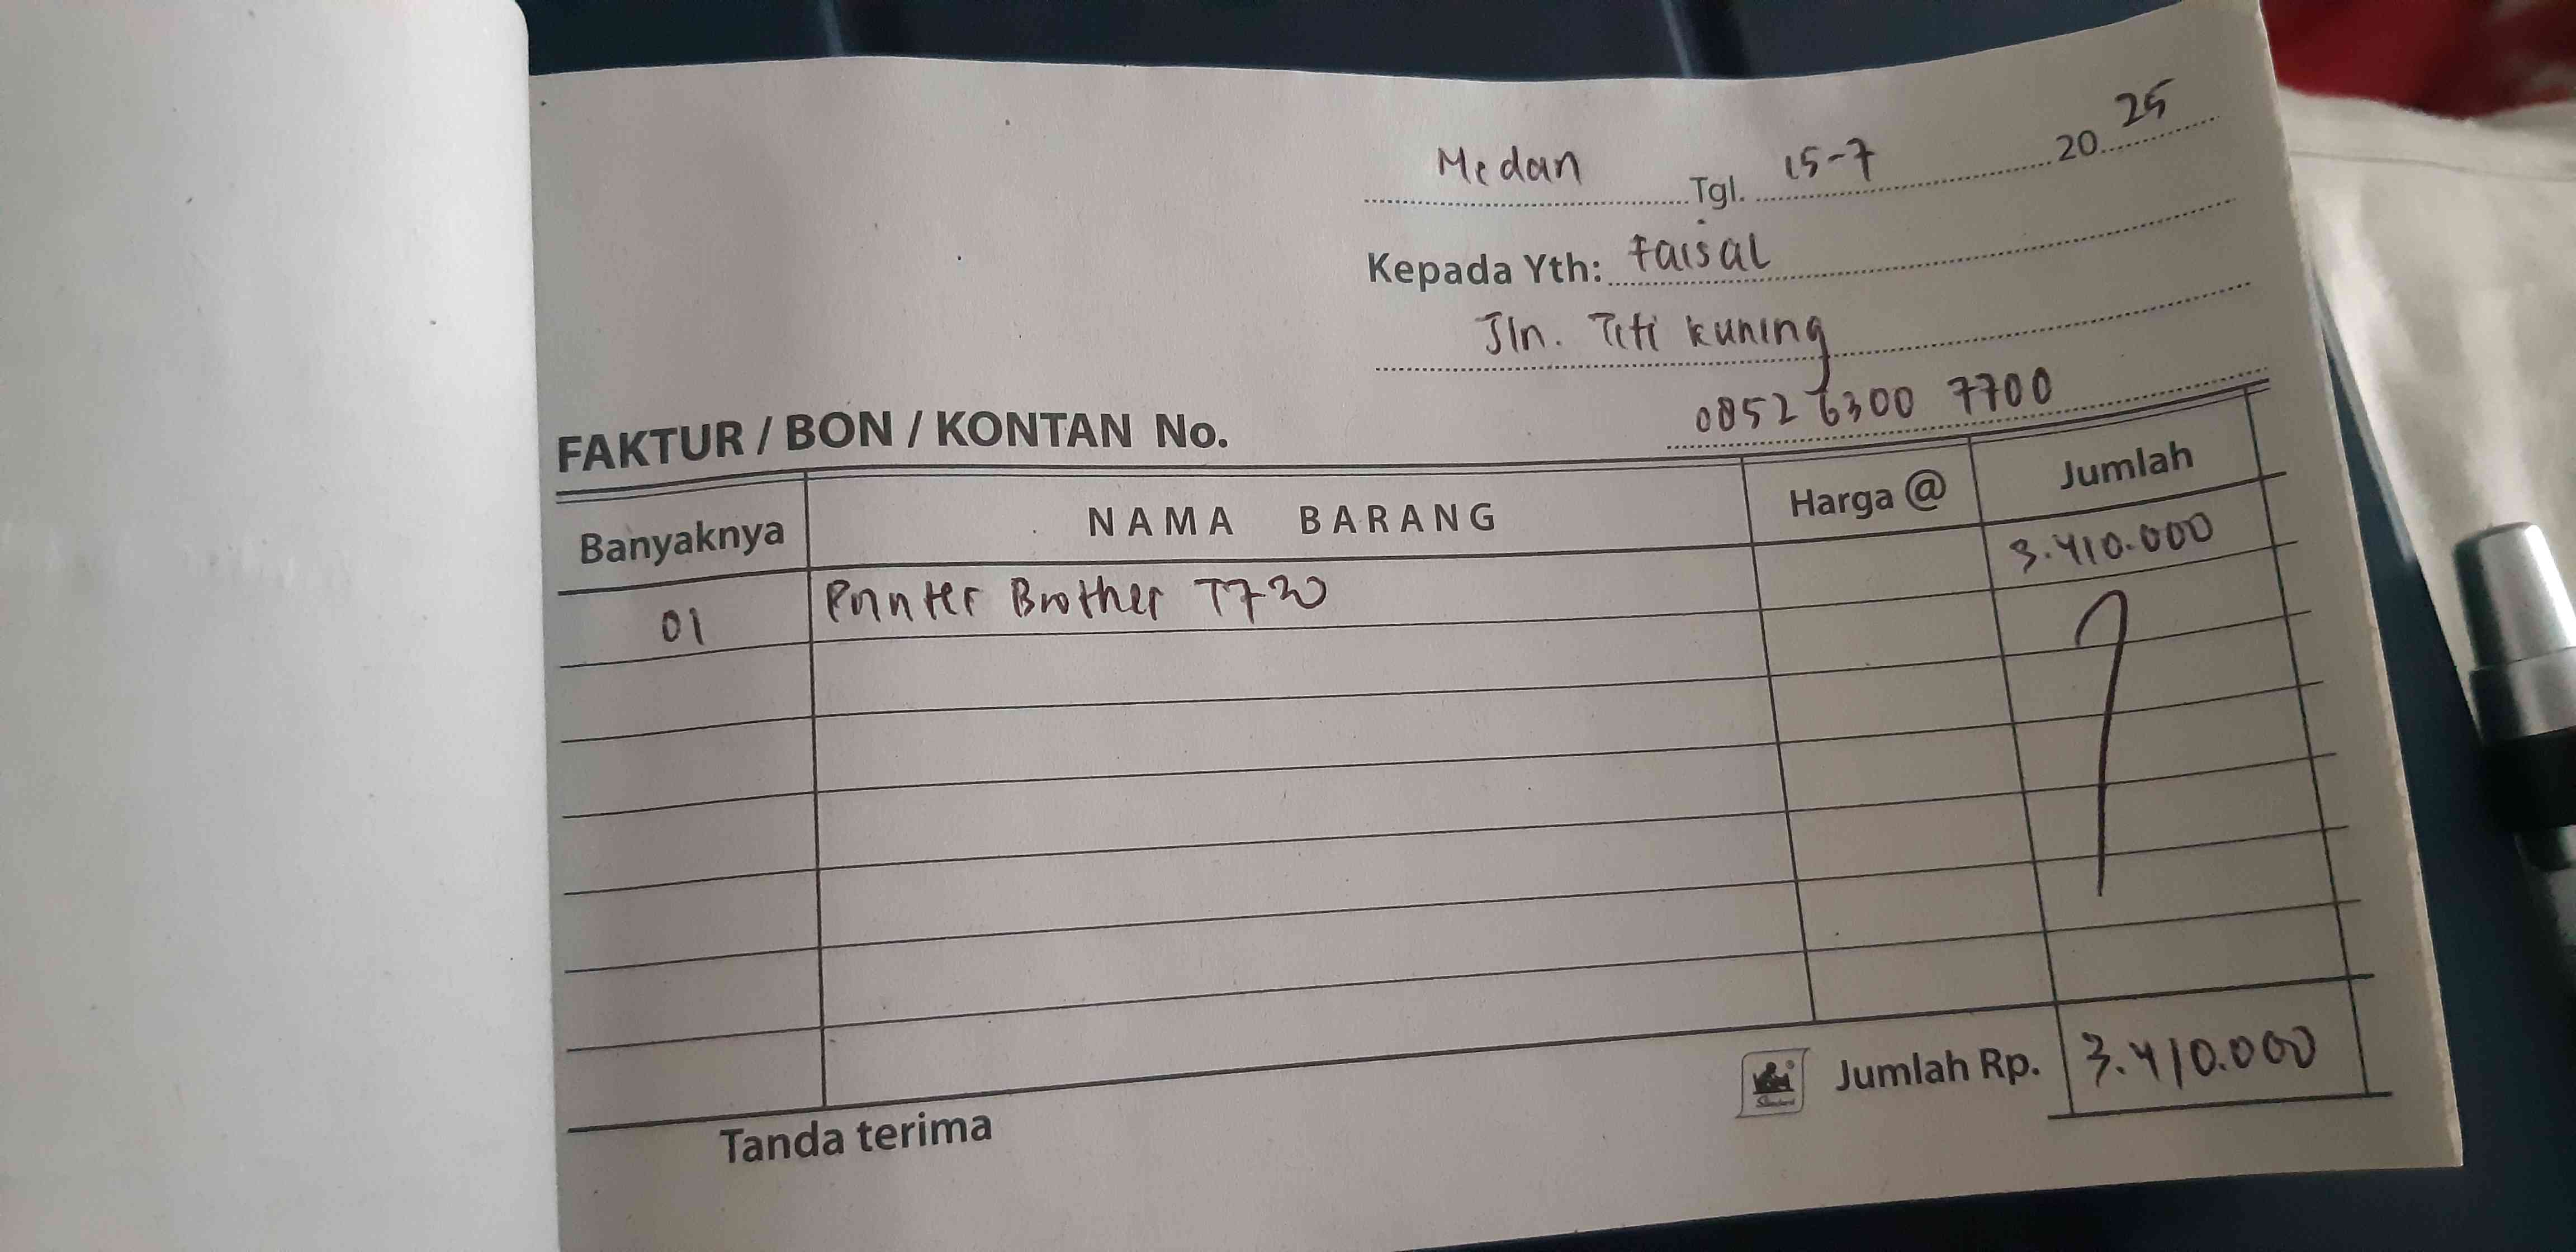 Medan Tgl. 15-7 20 25
Kepada Yth: Faisal
Jln. Titi Kuning
0852 6300 7700
FAKTUR / BON / KONTAN No.
Banyaknya NAMA BARANG Harga @ Jumlah
01 Printer Brother T720 3.410.000
Jumlah Rp. 3.410.000
Tanda terima